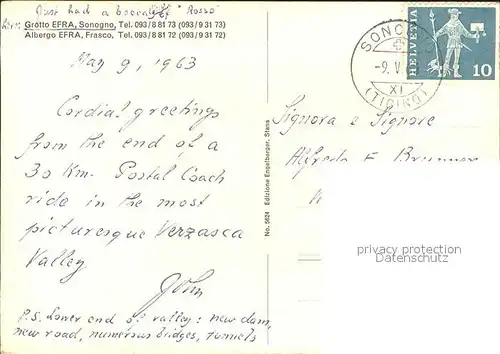 Just had a boccalino of "Rosso"
here:
Grotto EFRA, Sonogno, Tel. 093/8 81 73 (093/9 31 73)
Albergo EFRA, Frasco, Tel. 093/8 81 72 (093/9 31 72)
May 9, 1963
Cordial greetings
from the end of a
30 Km. Postal Coach
ride in the most
picturesque Verzasca
Valley.
John
P.S. Lower end of valley: new dam,
new road, numerous bridges, tunnels
No. 5624 Edizione Engelberger, Stans
SONOGNO
-9. V.
XI
(TICINO)
HELVETIA
10
Signora e Signore
Alfredo F Brunner
privacy protection
watermark